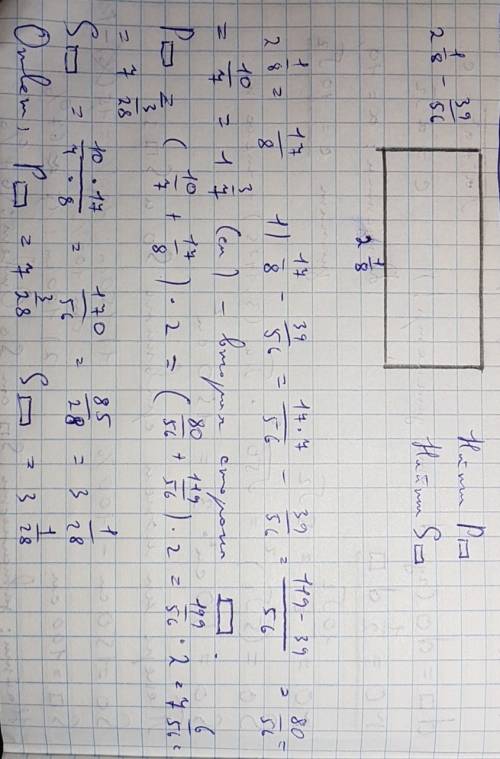 2 1/8 - 39/56
2 1/8
Найти P□
Найти S□
2 1/8 = 17/8   1) 17/8 - 39/56 = 17·7/56 - 39/56 = 119-39/56 = 80/56 =
= 10/7 = 1 3/7 (см) - вторая сторона □.
P□ = (10/7 + 17/8) · 2 = (80/56 + 119/56) · 2 = 199/56 · 2 = 7 6/56 =
= 7 3/28
S□ = 10·17/7·8 = 170/56 = 85/28 = 3 1/28
Ответ: P□ = 7 3/28   S□ = 3 1/28